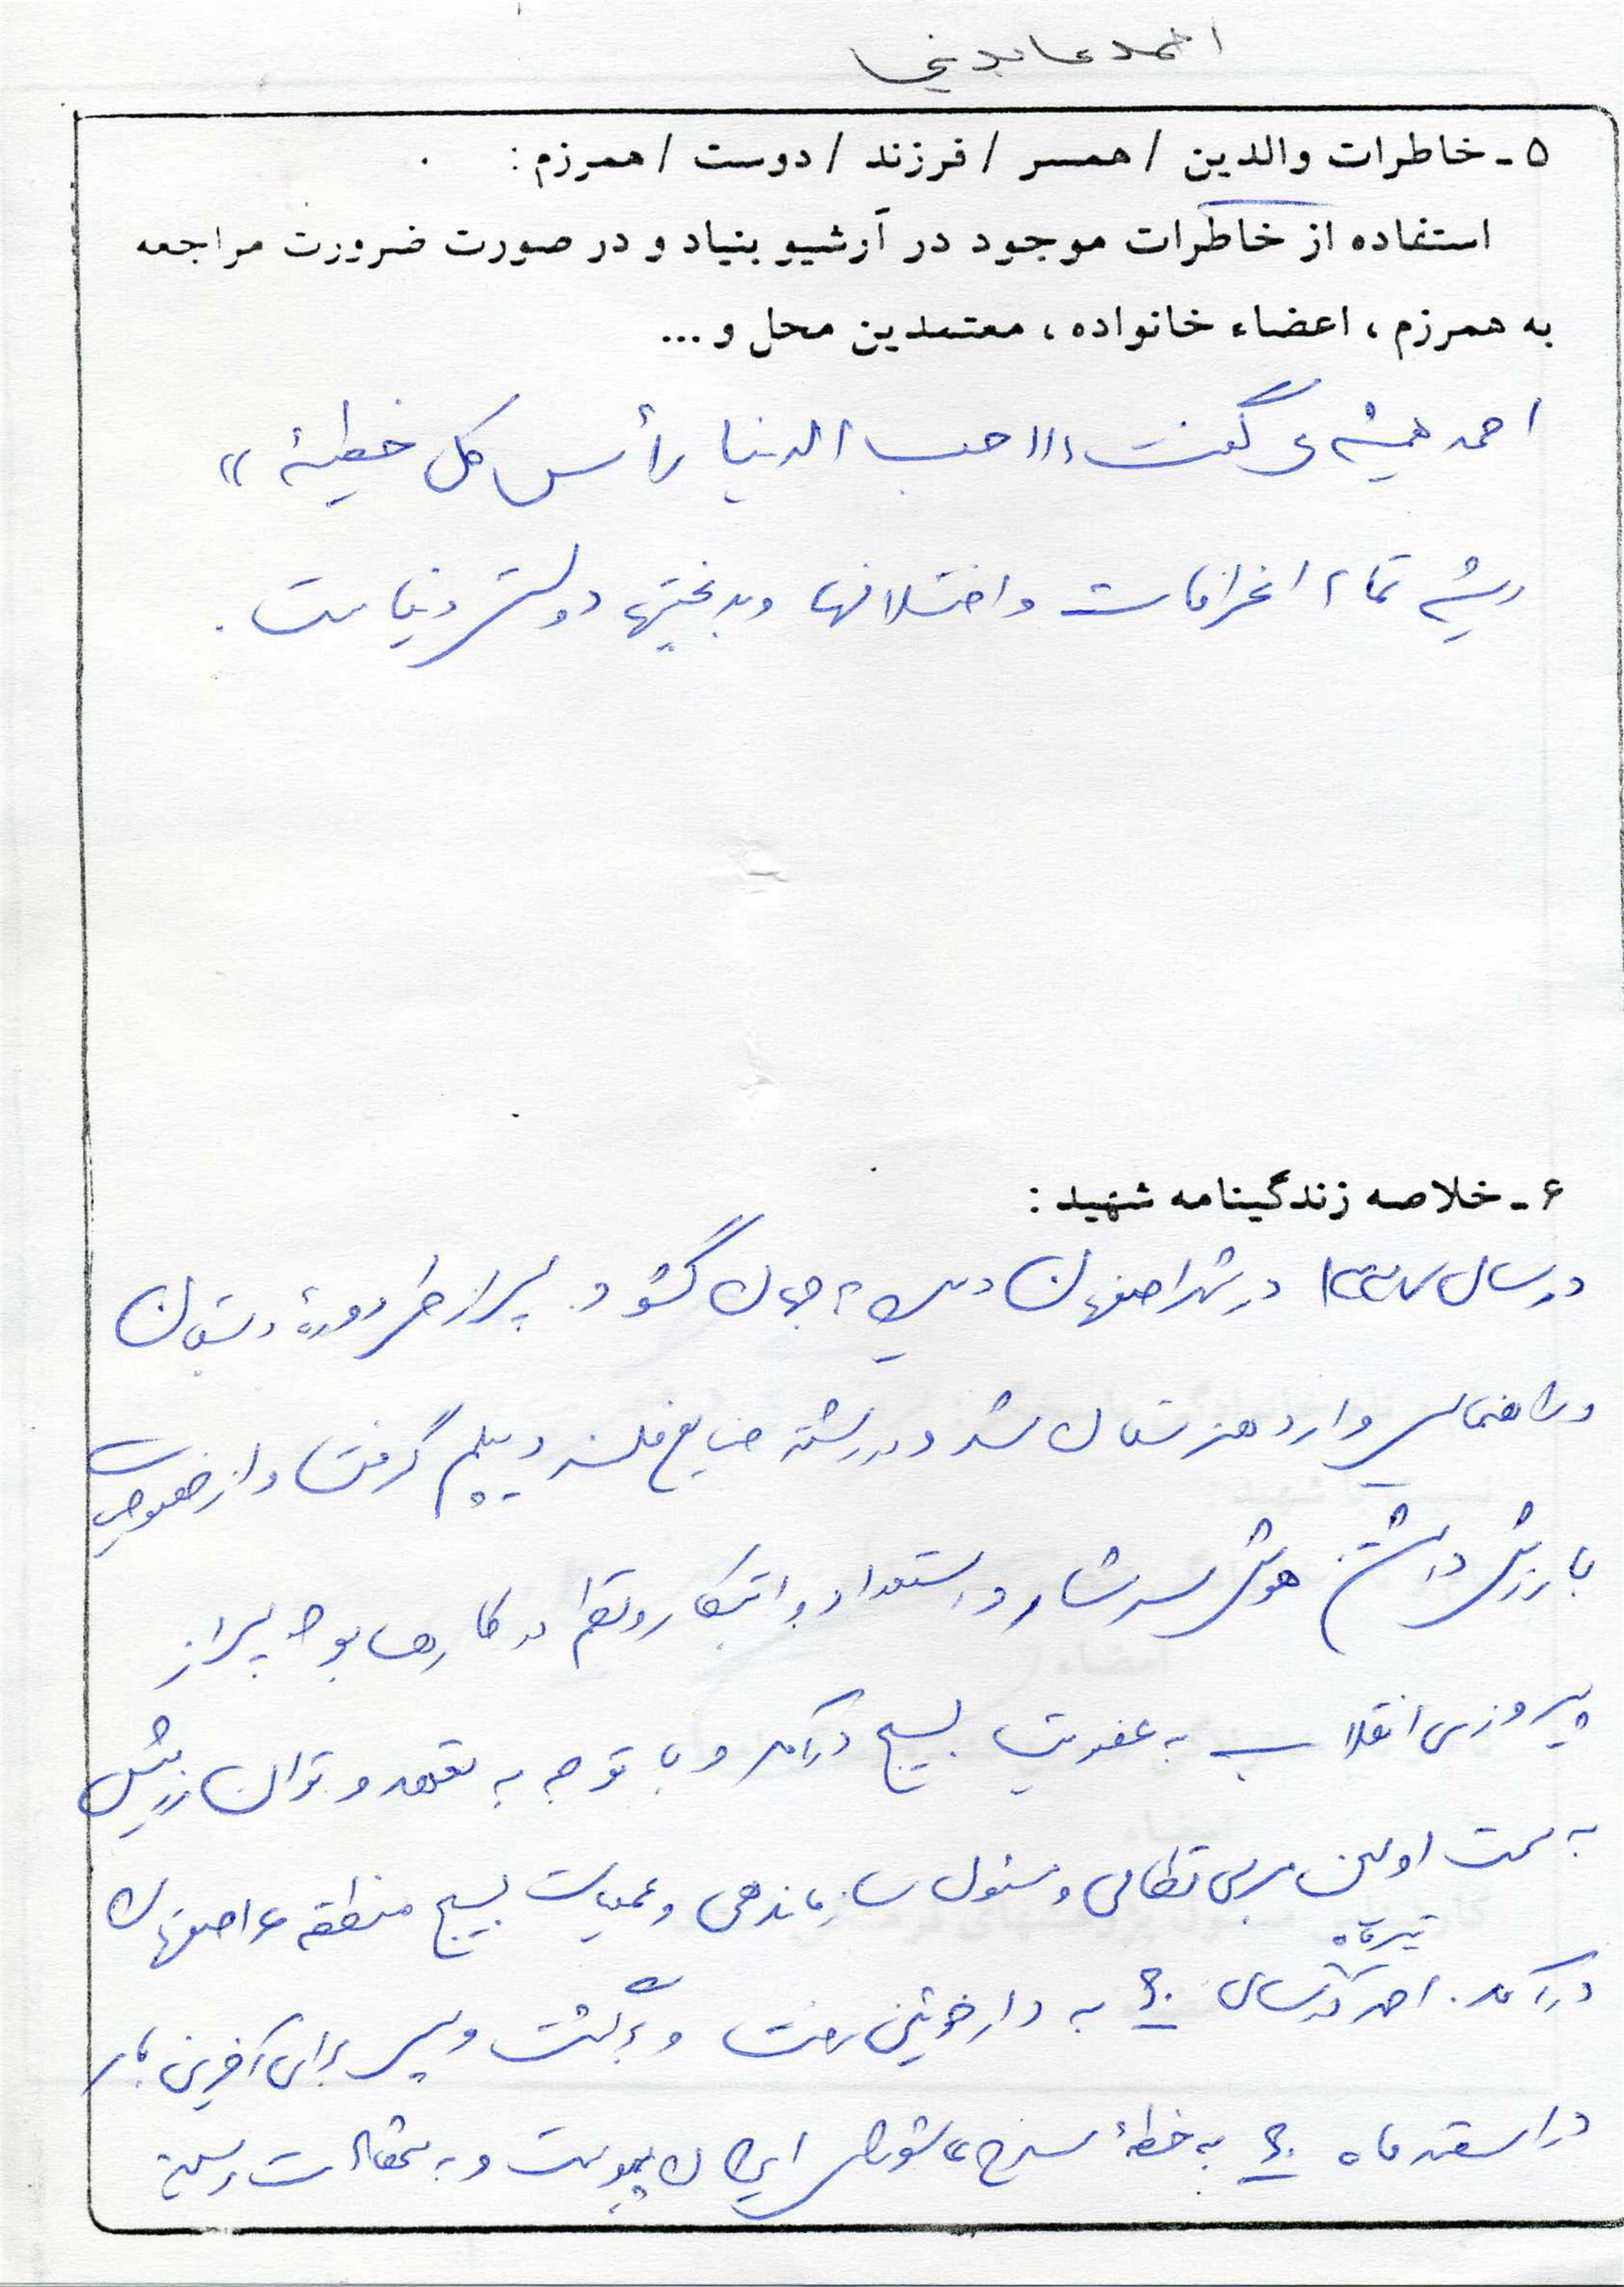 احمد عابدینی
۵ ـ خاطرات والدین / همسر / فرزند / دوست / همرزم :
استفاده از خاطرات موجود در آرشیو بنیاد و در صورت ضرورت مراجعه
به همرزم ، اعضاء خانواده ، معتمدین محل و ...
احمد همیشه می گفت ،،، حب الدنیا رأس کل خطیئة ،،
ریشه تمام انحرافات و اختلافها و بدبختیها دوستی دنیاست .
۶ ـ خلاصه زندگینامه شهید :
در سال ۱۳۳۷ در شهر اصفهان دیده به جهان گشود . پس از طی دوره دبستان
و راهنمایی وارد هنرستان شد و در رشته صنایع فلزی دیپلم گرفت و از خصوصیات
بارزش داشتن هوش سرشار و استعداد و ابتکار و نظم در کارها بود پس از
پیروزی انقلاب به عضویت بسیج درآمد و با توجه به تعهد و توان رزمیش
به سمت اولین مربی نظامی و مسئول سازماندهی و عملیات بسیج منطقه ۶ اصفهان
درآمد . احمد در تیرماه سال ۶۰ به دارخوئین رفت و برگشت و پس برای آخرین بار
در اسفند ماه ۶۰ به خطۀ سرخ عاشورای ایران پیوست و به